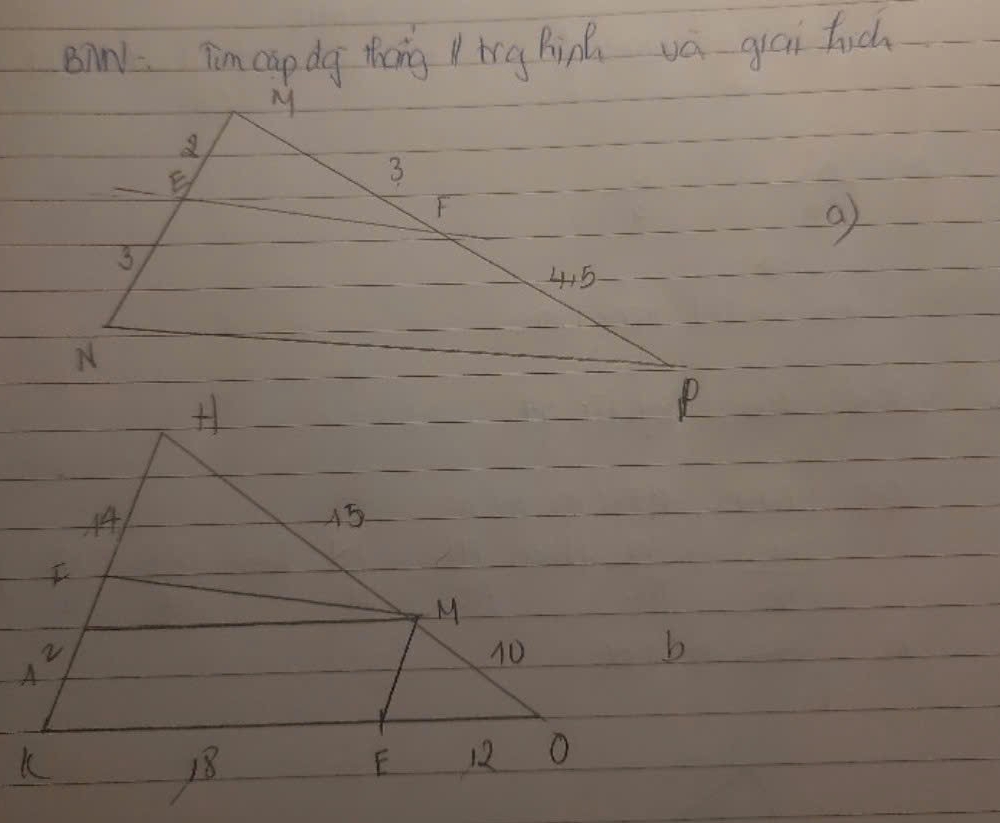 BTVN: Tìm cặp đg thẳng // trg hình và giải thích
M
2
3
E
F
a)
3
4,5
N
P
H
14
15
F
M
2
10
b
1
K
18
E
12
O